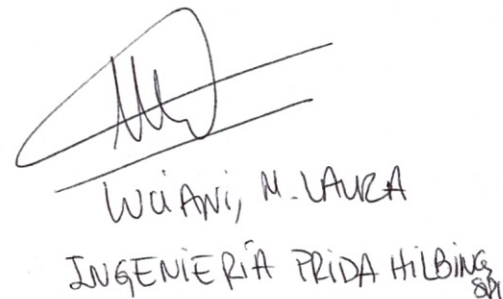 LUCIANI, M. LAURA
INGENIERÍA PRIDA HILBING SRL